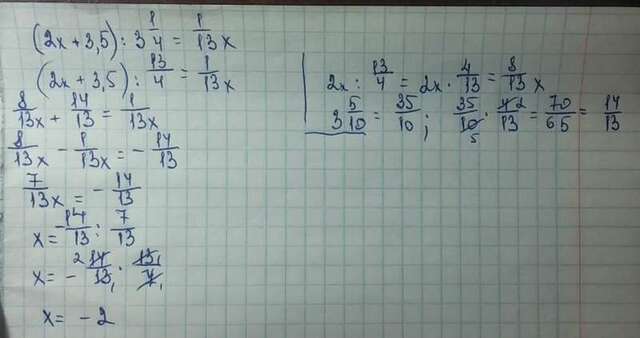 (2x + 3,5) : 3 1/4 = 1/13 x
(2x + 3,5) : 13/4 = 1/13 x
8/13 x + 14/13 = 1/13 x
8/13 x - 1/13 x = - 14/13
7/13 x = - 14/13
x = - 14/13 : 7/13
x = - 14/13 · 13/7 2 1 1 1
x = - 2
2x : 13/4 = 2x · 4/13 = 8/13 x
3 5/10 = 35/10 ; 35/10 · 4/13 = 70/65 = 14/13 5 2